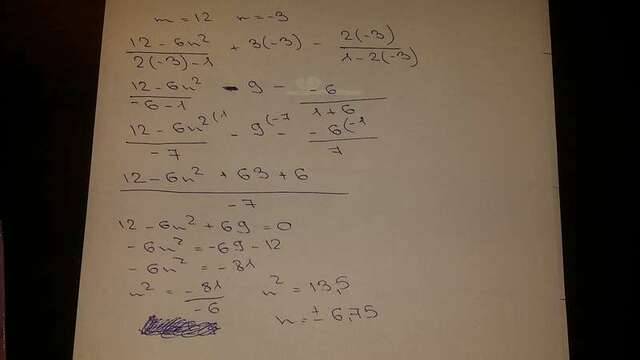 m = 12 n = -3
12 - 6n² / 2(-3) - 1 + 3(-3) - 2(-3) / 1 - 2(-3)
12 - 6n² / -6 - 1 - 9 - -6 / 1 + 6
12 - 6n² (1 / -7 - 9 (-7 - -6 (-1 / 7
12 - 6n² + 63 + 6 / -7
12 - 6n² + 69 = 0
-6n² = -69 - 12
-6n² = -81
n² = -81 / -6 n² = 13,5
n = ± 6,75